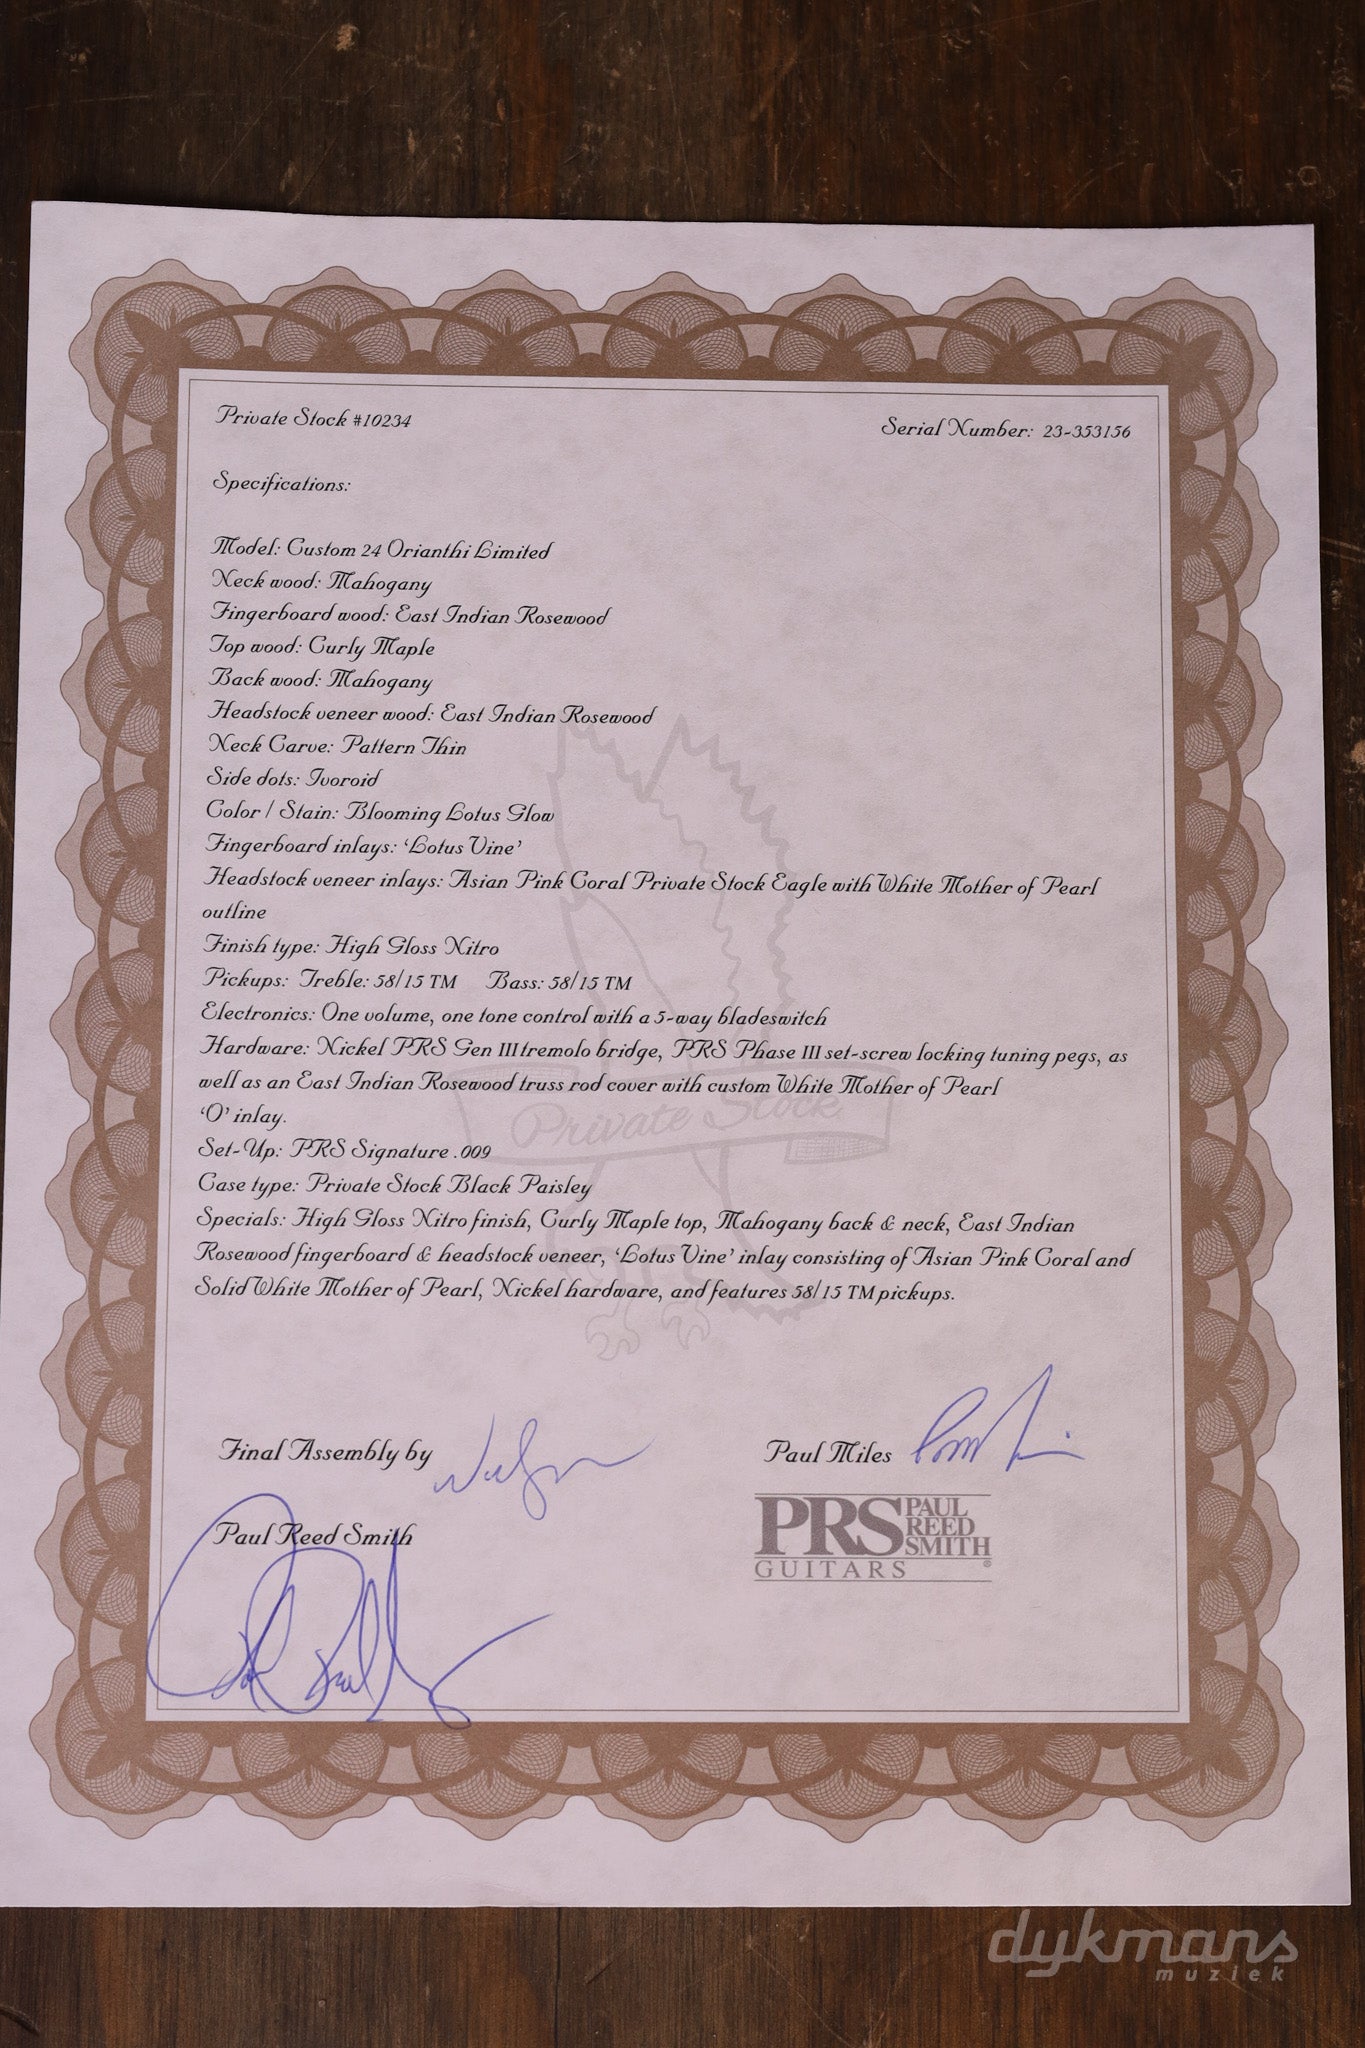 Private Stock #10234
Serial Number: 23-353156
Specifications:
Model: Custom 24 Orianthi Limited
Neck wood: Mahogany
Fingerboard wood: East Indian Rosewood
Top wood: Curly Maple
Back wood: Mahogany
Headstock veneer wood: East Indian Rosewood
Neck Carve: Pattern Thin
Side dots: Ivoroid
Color / Stain: Blooming Lotus Glow
Fingerboard inlays: ‘Lotus Vine’
Headstock veneer inlays: Asian Pink Coral Private Stock Eagle with White Mother of Pearl
outline
Finish type: High Gloss Nitro
Pickups: Treble: 58/15 TM Bass: 58/15 TM
Electronics: One volume, one tone control with a 5-way bladeswitch
Hardware: Nickel PRS Gen III tremolo bridge, PRS Phase III set-screw locking tuning pegs, as
well as an East Indian Rosewood truss rod cover with custom White Mother of Pearl
‘O’ inlay.
Private Stock
Set-Up: PRS Signature .009
Case type: Private Stock Black Paisley
Specials: High Gloss Nitro finish, Curly Maple top, Mahogany back & neck, East Indian
Rosewood fingerboard & headstock veneer, ‘Lotus Vine’ inlay consisting of Asian Pink Coral and
Solid White Mother of Pearl, Nickel hardware, and features 58/15 TM pickups.
Final Assembly by
Paul Miles
Paul Reed Smith
PRS PAUL
REED
SMITH
GUITARS ®
dykmans
muziek